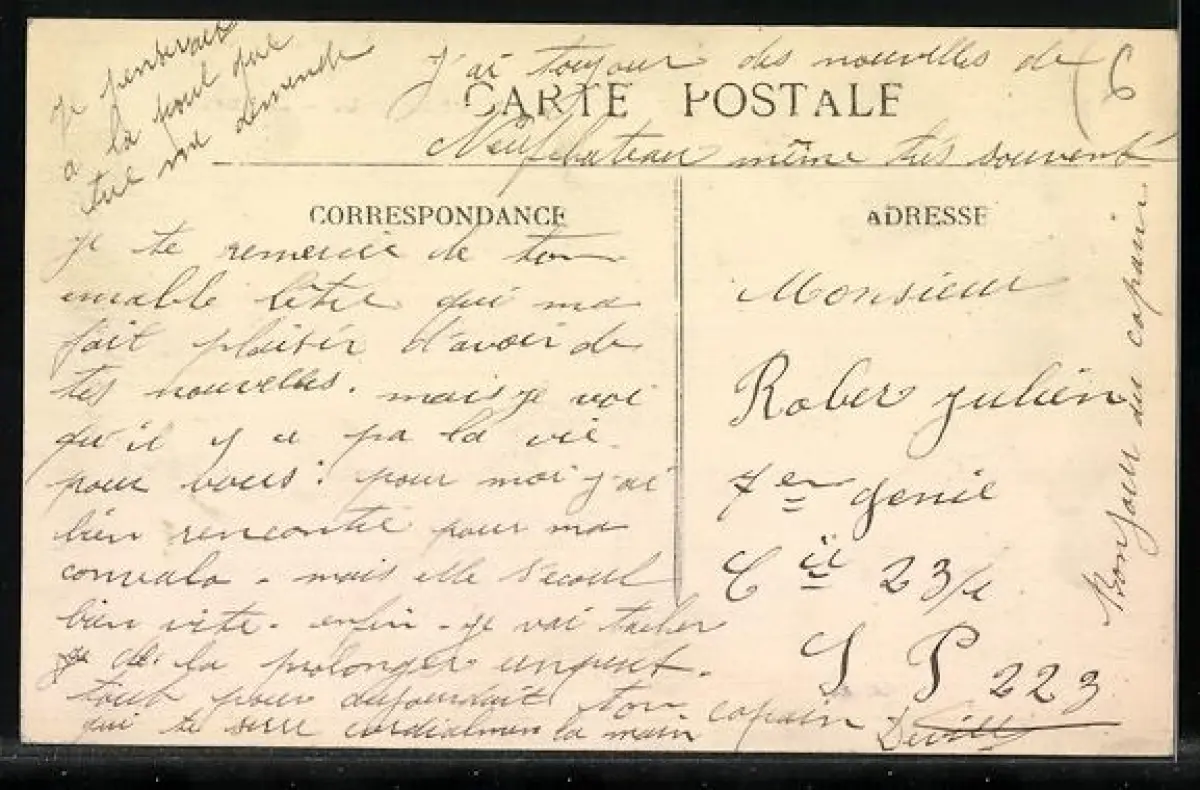 je penserait
a la poul que
tue ma demende
J'ai toujour des nouvelles de
6
CARTE POSTALE
Neufchateau même tres souvent
CORRESPONDANCE
je te remercie de ton
aimable lètre qui ma
fait plaisir d'avoir de
tes nouvelles. mais je voi
qu'il y a pa la vie
pour vous: pour moi j'ai
bien rencontré pour ma
convala - mais elle s'ecoul
bien vite. enfin - je vai tacher
de la prolonger unpeut.
tout pour aujourduit ton copain
qui te serre cordialmen la main
ADRESSE
Monsieur
Rober julien
7en genie
Cie 23/
S P 223
Bonjour du copain